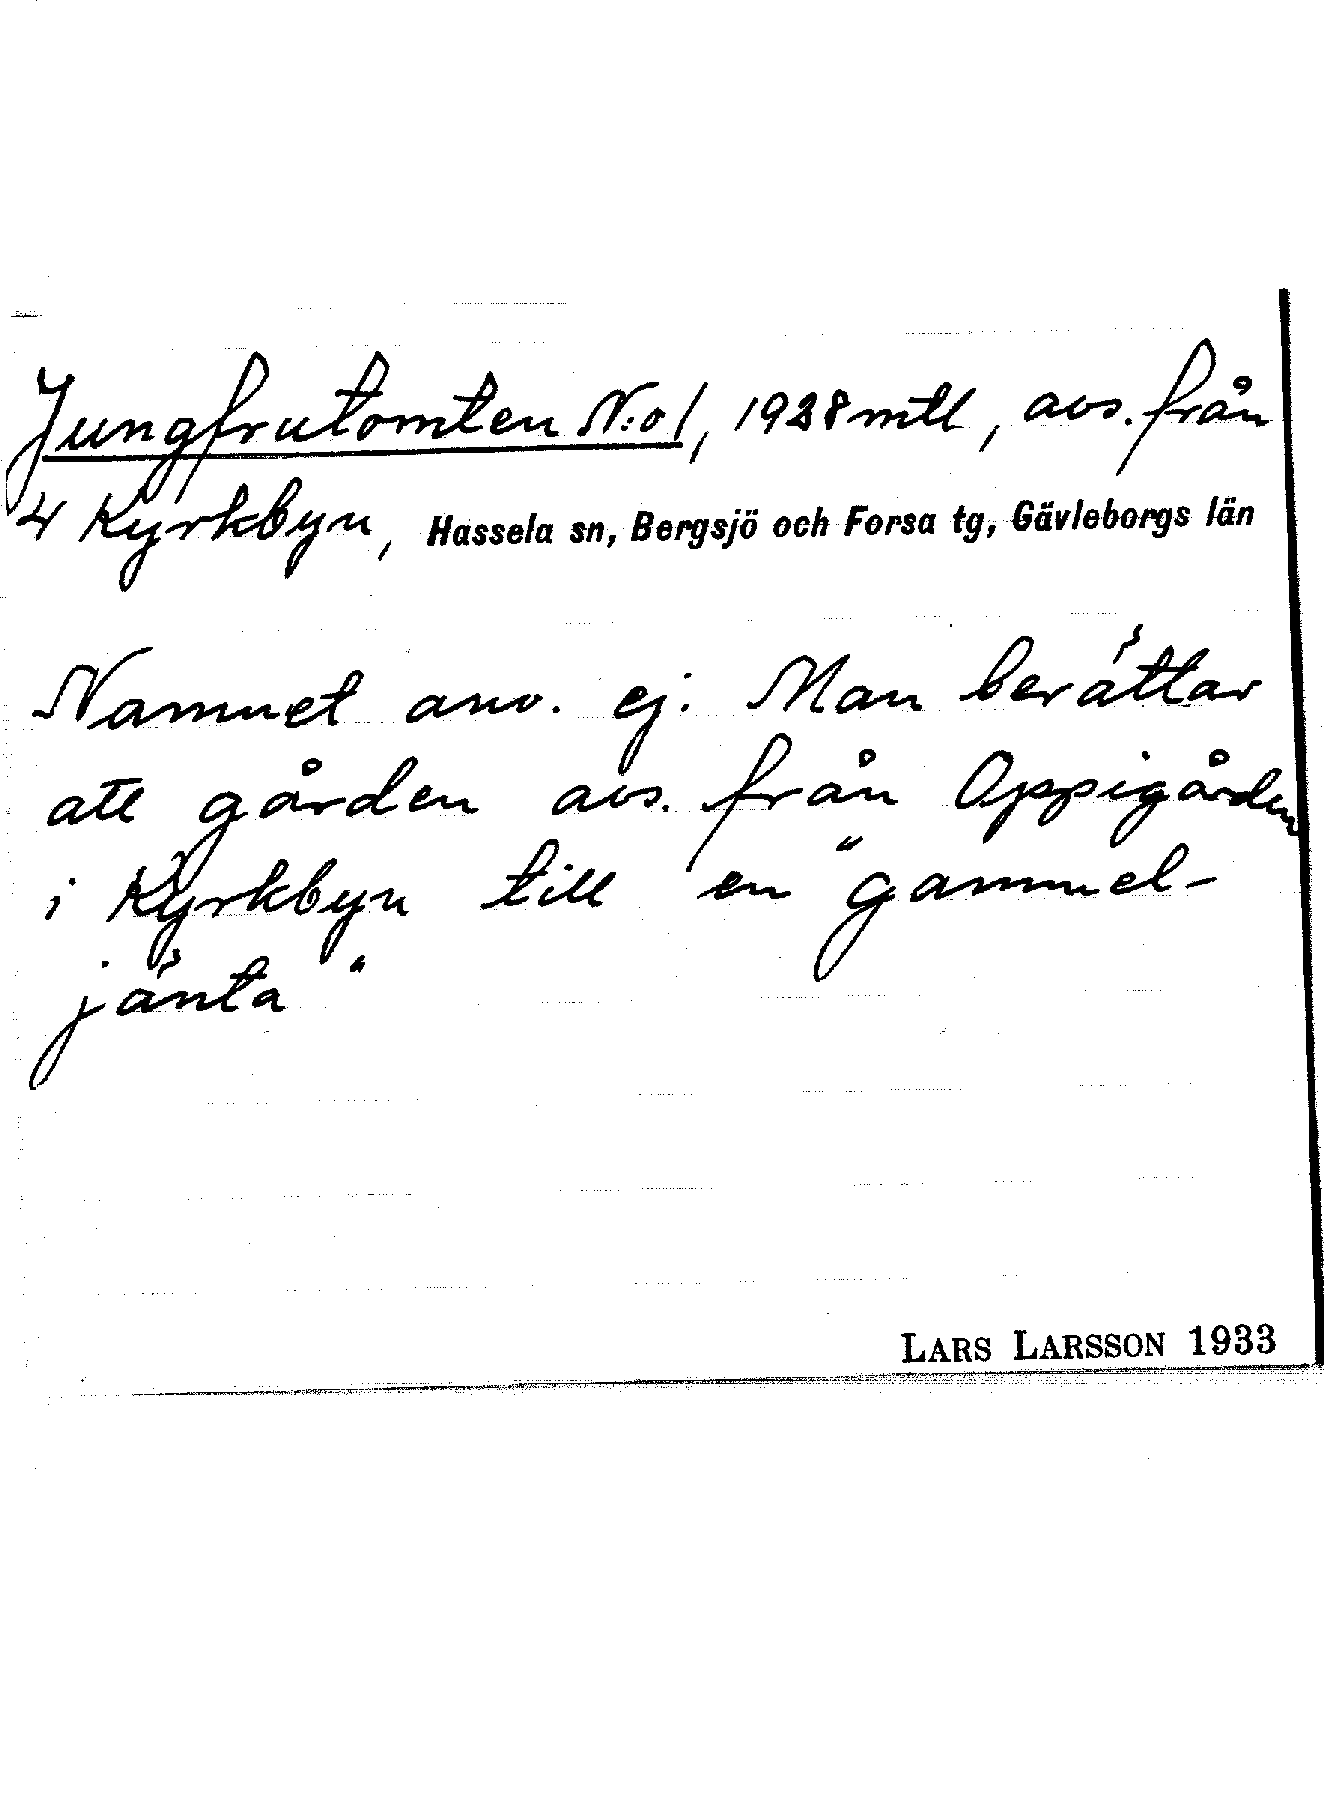 Jungfrutomten N:o 1, 1928 mtl, avs. från
4 Kyrkbyn, Hassela sn, Bergsjö och Forsa tg, Gävleborgs län
Namnet anv. ej. Man berättar
att gården avs. från Oppigården
i Kyrkbyn till en "gammel-
jänta"
LARS LARSSON 1933